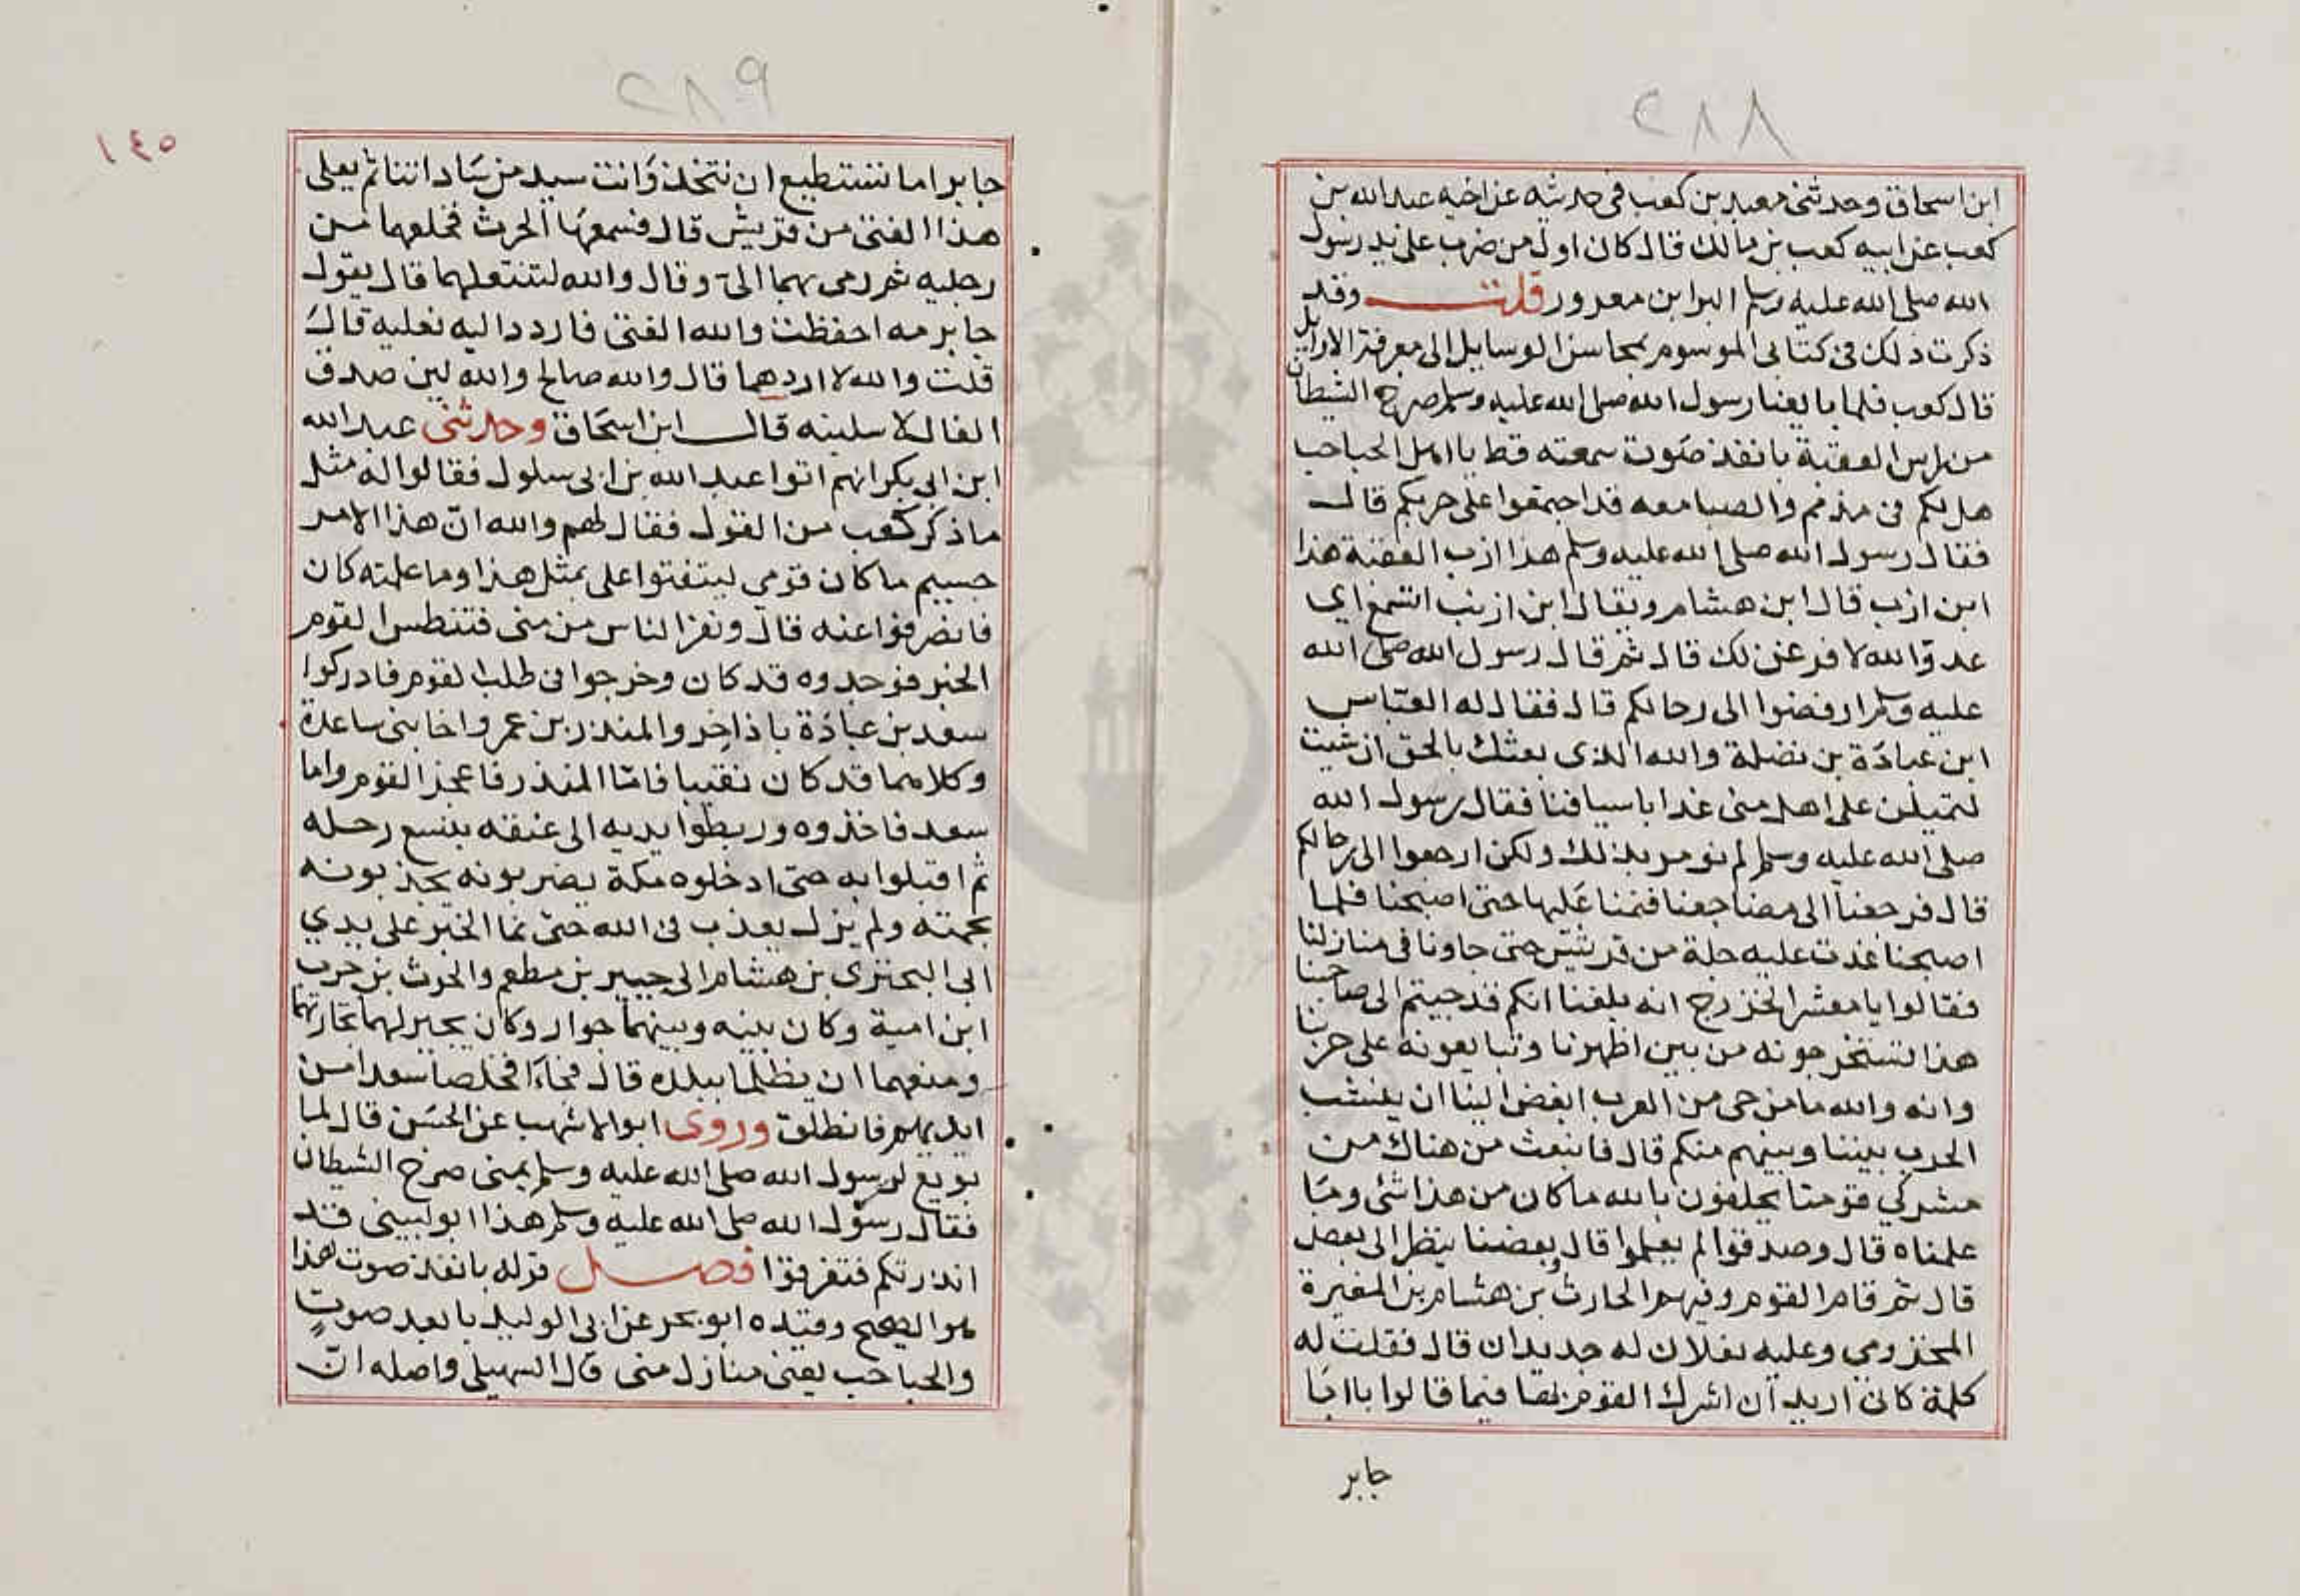 ٢٨٨
ابن اسحاق وحدثنى معبد بن كعب فى حديثه عن اخيه عبد الله بن
كعب عن ابيه كعب بن مالك قال كان اول من ضرب على يد رسول
الله صلى الله عليه وسلم البرا ابن معرور قلت وقد
ذكرت ذلك فى كتابى الموسوم بمحاسن الوسايل الى معرفة الاوايل
قال كعب فلما بايعنا رسول الله صلى الله عليه وسلم صرخ الشيطان
من راس العقبة بانفذ صوت سمعته قط يا اهل الجباجب
هل لكم فى مذمم والصبا معه قد اجتمعوا على حربكم قال
فقال رسول الله صلى الله عليه وسلم هذا ازب العقبة هذا
ابن ازب قال ابن هشام ويقال ابن ازيب اتسمع اي
عدو الله لافرغن لك قال ثم قال رسول الله صلى الله
عليه وسلم ارفضوا الى رحالكم قال فقال له العباس
ابن عبادة بن نضلة والله الذى بعثك بالحق ان شيت
لتميلن على اهل منى غدا باسيافنا فقال رسول الله
صلى الله عليه وسلم لم نومر بذلك ولكن ارجعوا الى رحالكم
قال فرجعنا الى مضاجعنا فنمنا عليها حتى اصبحنا فلما
اصبحنا غدت عليه جلة من قريش حتى جاونا فى منازلنا
فقالوا يا معشر الخزرج انه بلغنا انكم قد جيتم الى صاحبنا
هذا تستخرجونه من بين اظهرنا وتبايعونه على حربنا
وانه والله ما من حى من العرب ابغض الينا ان ينشب
الحرب بيننا وبينهم منكم قال فانبعث من هناك من
مشركي قومنا يحلفون بالله ما كان من هذا شئ وما
علمناه قال وصدقوا لم يعلموا قال وبعضنا ينظر الى بعض
قال ثم قام القوم وفيهم الحارث بن هشام بن المغيرة
المخزومي وعليه نعلان له جديدان قال فقلت له
كلمة كانى اريد ان اشرك القوم بها فيما قالوا يا ابا
جابر
٢٨٩
١٤٥
جابر اما تستطيع ان تتخذ وانت سيد من ساداتنا مثل نعلى
هذا الفتى من قريش قال فسمعها الحرث فخلعهما من
رجليه ثم رمى بهما الى وقال والله لتنتعلهما قال يقول
جابر مه احفظت والله الفتى فاردد اليه نعليه قال
قلت والله لا اردهما قال والله صالح والله لين صدق
الفال لاسلبنه قال ابن اسحاق وحدثنى عبد الله
ابن ابى بكر انهم اتوا عبد الله بن ابى سلول فقالوا له مثل
ما ذكر كعب من القول فقال لهم والله ان هذا الامر
جسيم ما كان قومي ليتفتوا على بمثل هذا وما علمته كان
فانصرفوا عنه قال ونفر الناس من منى فتنطس القوم
الخبر فوجدوه قد كان وخرجوا فى طلب القوم فادركوا
سعد بن عبادة باذاخر والمنذر بن عمرو اخا بنى ساعدة
وكلاهما قد كان نقيبا فاما المنذر فاعجز القوم واما
سعد فاخذوه وربطوا يديه الى عنقه بنسع رحله
ثم اقبلوا به حتى ادخلوه مكة يضربونه يجذبونه
بجمته ولم يزل يعذب فى الله حتى نما الخبر على يدي
ابى البحترى بن هشام الى جبير بن مطعم والحرث بن حرب
ابن امية وكان بينه وبينهما جوار وكان يجير لهما تجارتهما
ومنعهما ان يظلما ببلده قال فجاءا فخلصا سعدا من
ايديهم فانطلق وروى ابو الاشهب عن الحسن قال لما
بويع لرسول الله صلى الله عليه وسلم بمنى صرخ الشيطان
فقال رسول الله صلى الله عليه وسلم هذا ابو لبينى قد
انذرتكم فتفرقوا فصل قوله بانفذ صوت هذا
هو الصحيح وقيده ابو بحر عن ابى الوليد بابعد صوت
والجباجب يعنى منازل منى قال السهيلى واصله ان